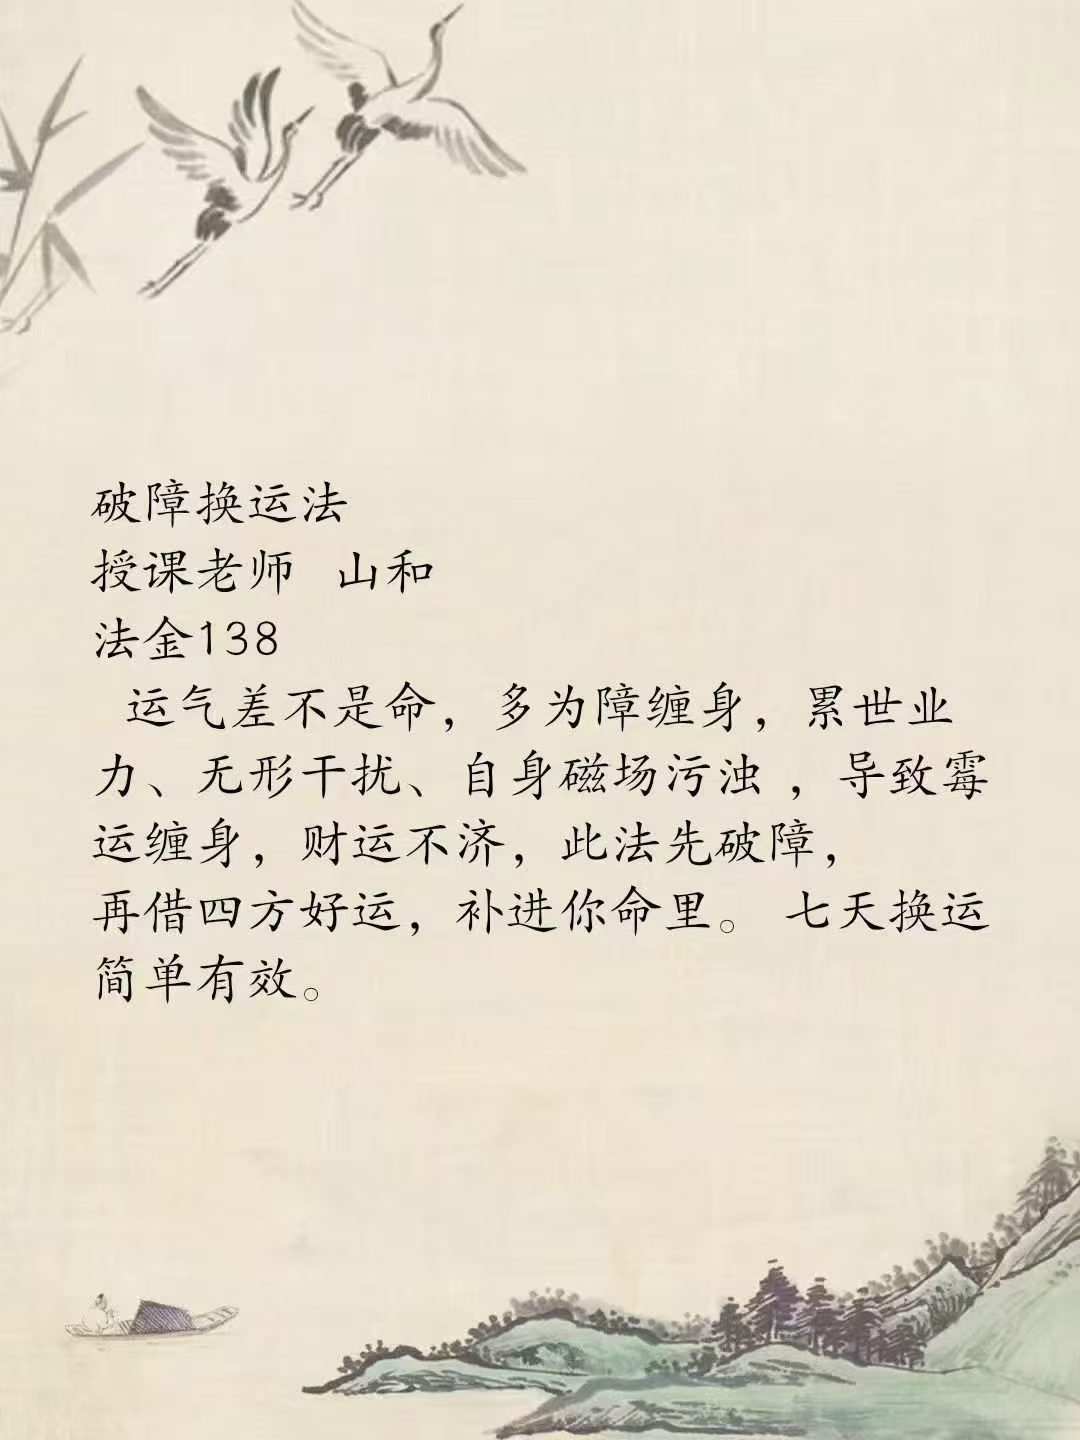 破障换运法
授课老师 山和
法金138
运气差不是命，多为障缠身，累世业
力、无形干扰、自身磁场污浊 ，导致霉
运缠身，财运不济，此法先破障，
再借四方好运，补进你命里。 七天换运
简单有效。